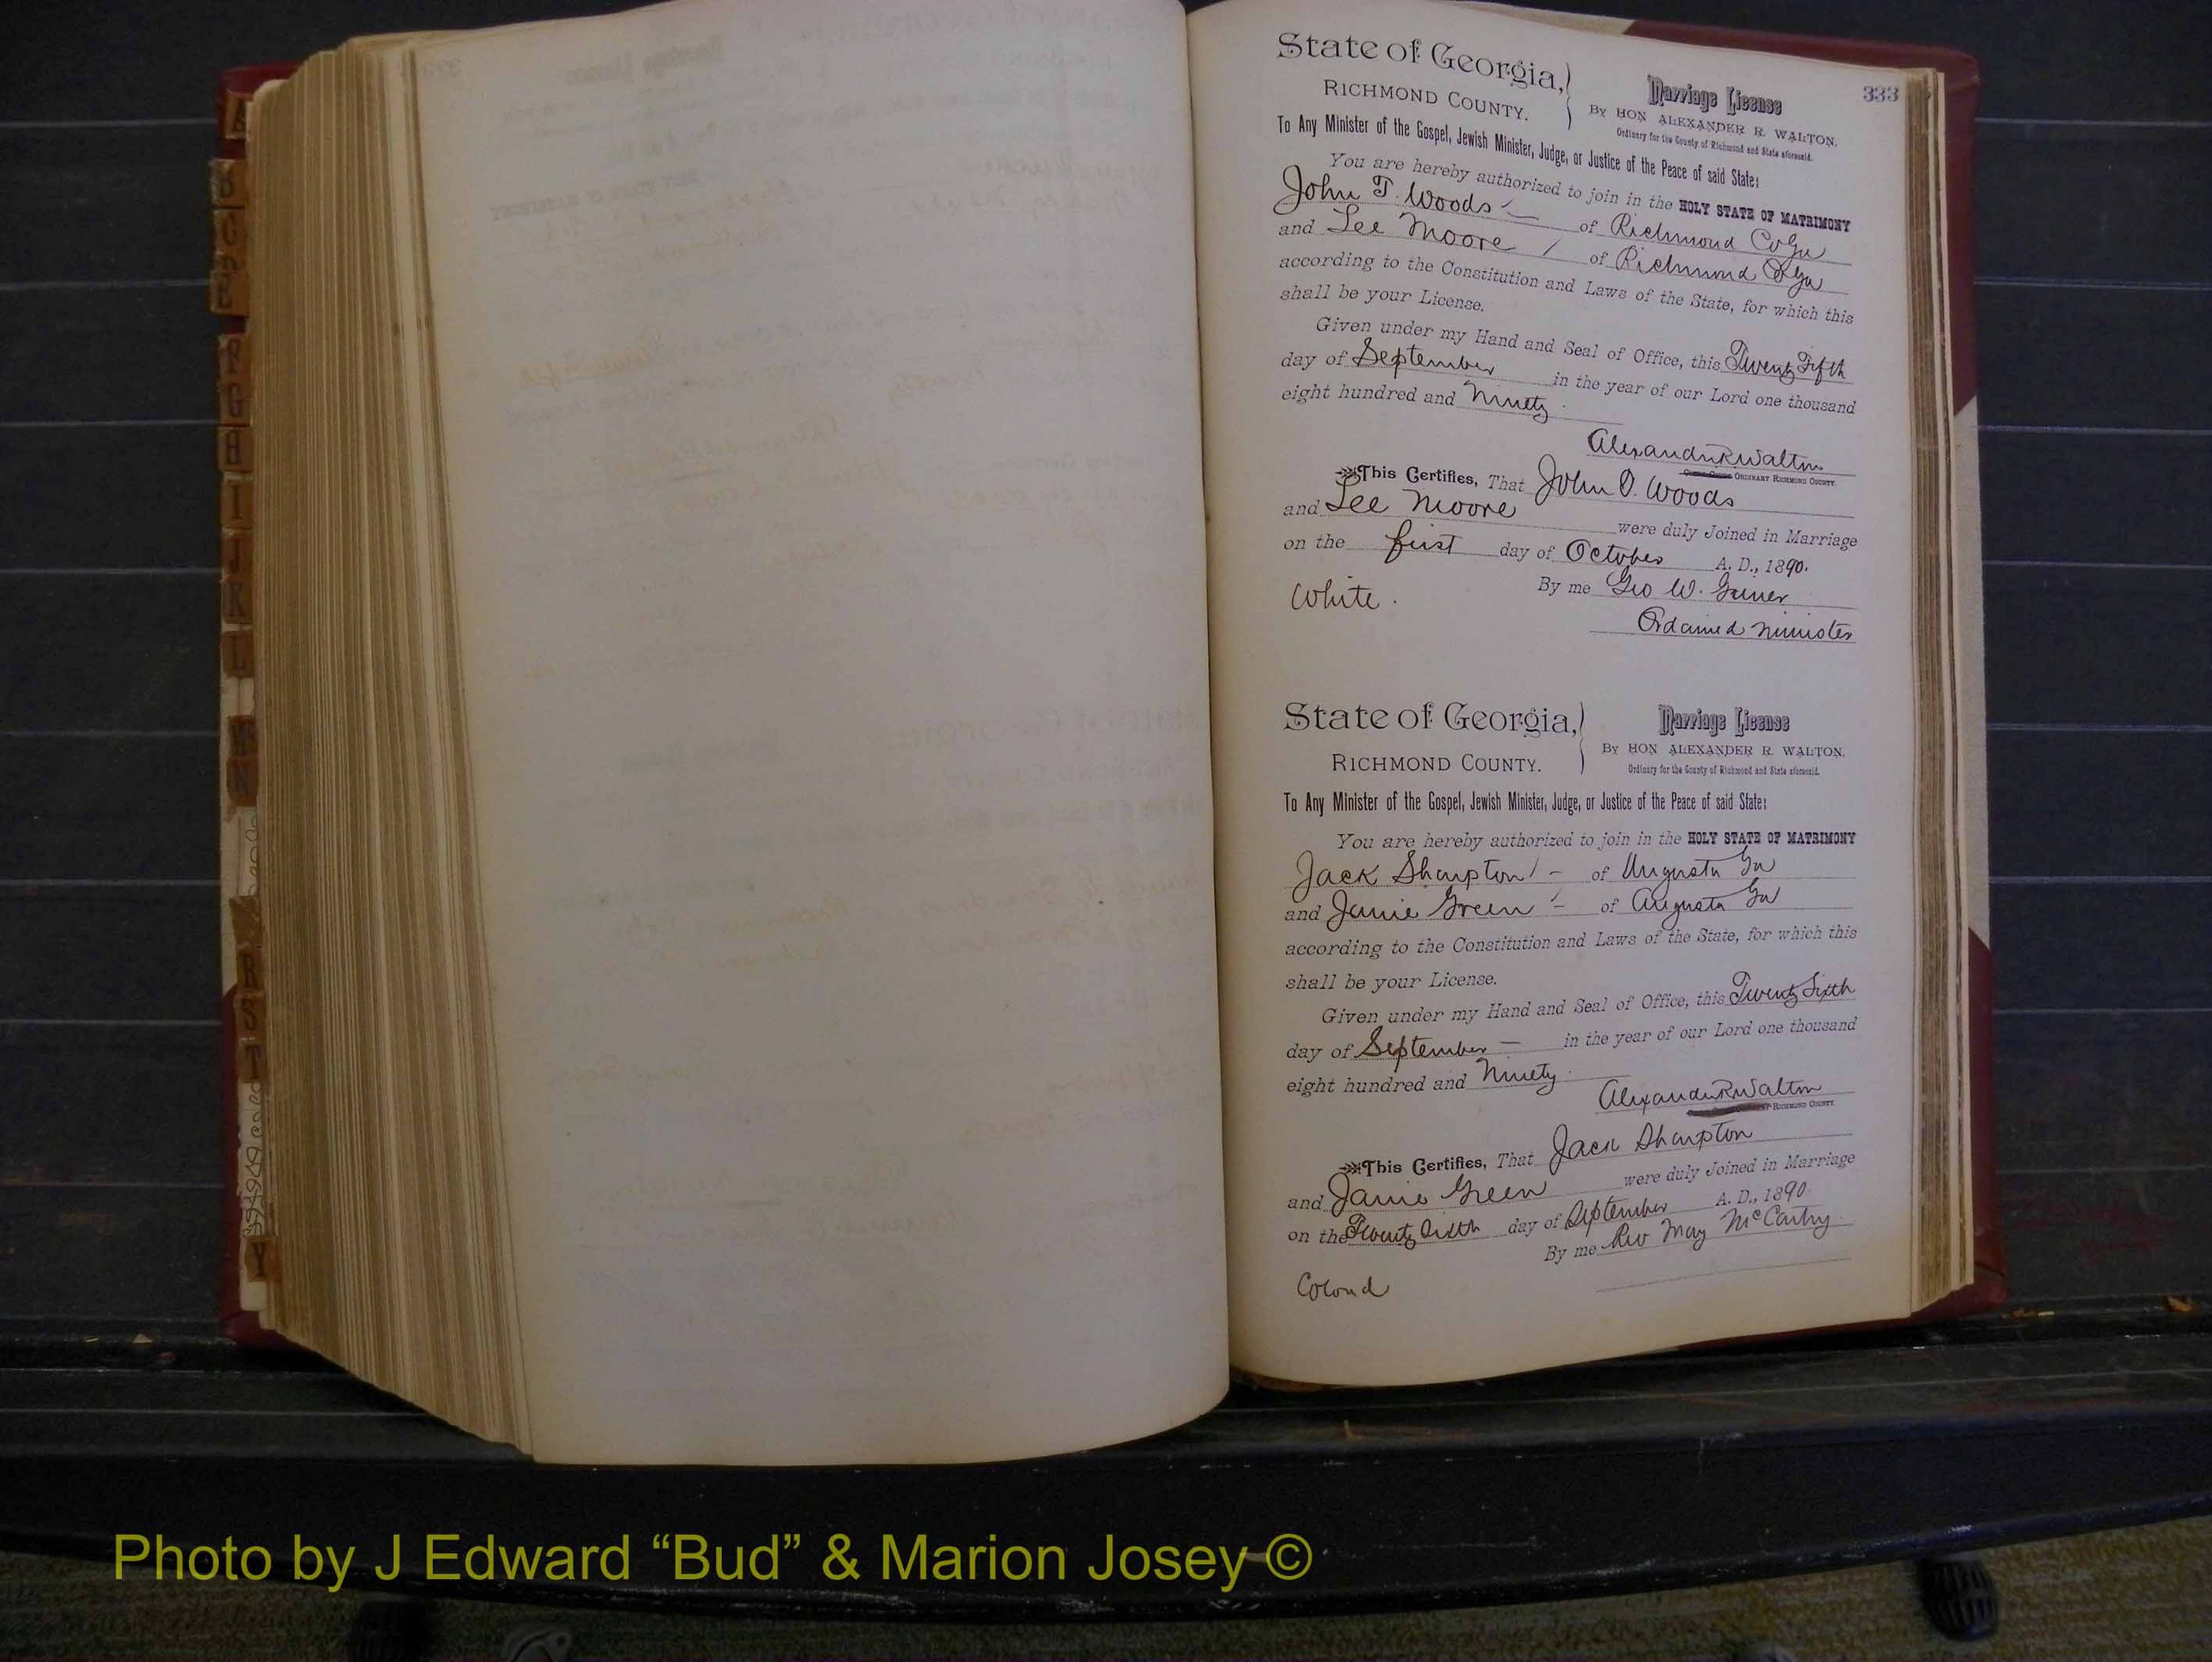 State of Georgia,
RICHMOND COUNTY.
Marriage License
333
BY HON ALEXANDER R. WALTON,
Ordinary for the County of Richmond and State aforesaid.
To Any Minister of the Gospel, Jewish Minister, Judge, or Justice of the Peace of said State:
You are hereby authorized to join in the HOLY STATE OF MATRIMONY
John T. Woods of Richmond Co Ga
and Lee Moore of Richmond Co Ga
according to the Constitution and Laws of the State, for which this
shall be your License.
Given under my Hand and Seal of Office, this Twenty Fifth
day of September in the year of our Lord one thousand
eight hundred and Ninety.
Alexander R Walton
ORDINARY RICHMOND COUNTY.
This Certifies, That John T. Woods
and Lee Moore were duly Joined in Marriage
on the first day of October A. D., 1890.
White. By me Geo W.
Ordained Minister
State of Georgia,
RICHMOND COUNTY.
Marriage License
By HON ALEXANDER R. WALTON,
Ordinary for the County of Richmond and State aforesaid.
To Any Minister of the Gospel, Jewish Minister, Judge, or Justice of the Peace of said State:
You are hereby authorized to join in the HOLY STATE OF MATRIMONY
Jack Sharpton - of Augusta Ga
and Janie Green - of Augusta Ga
according to the Constitution and Laws of the State, for which this
shall be your License.
Given under my Hand and Seal of Office, this Twenty Sixth
day of September - in the year of our Lord one thousand
eight hundred and Ninety.
Alexander R Walton
RICHMOND COUNTY.
This Certifies, That Jack Sharpton
and Janie Green were duly Joined in Marriage
on the Twenty Sixth day of September A. D., 1890
By me Rev May McCarthy
Colored
A
B
C
D
E
F
G
H
I
J
K
L
M
N
R
S
T
Y
Photo by J Edward “Bud” & Marion Josey ©